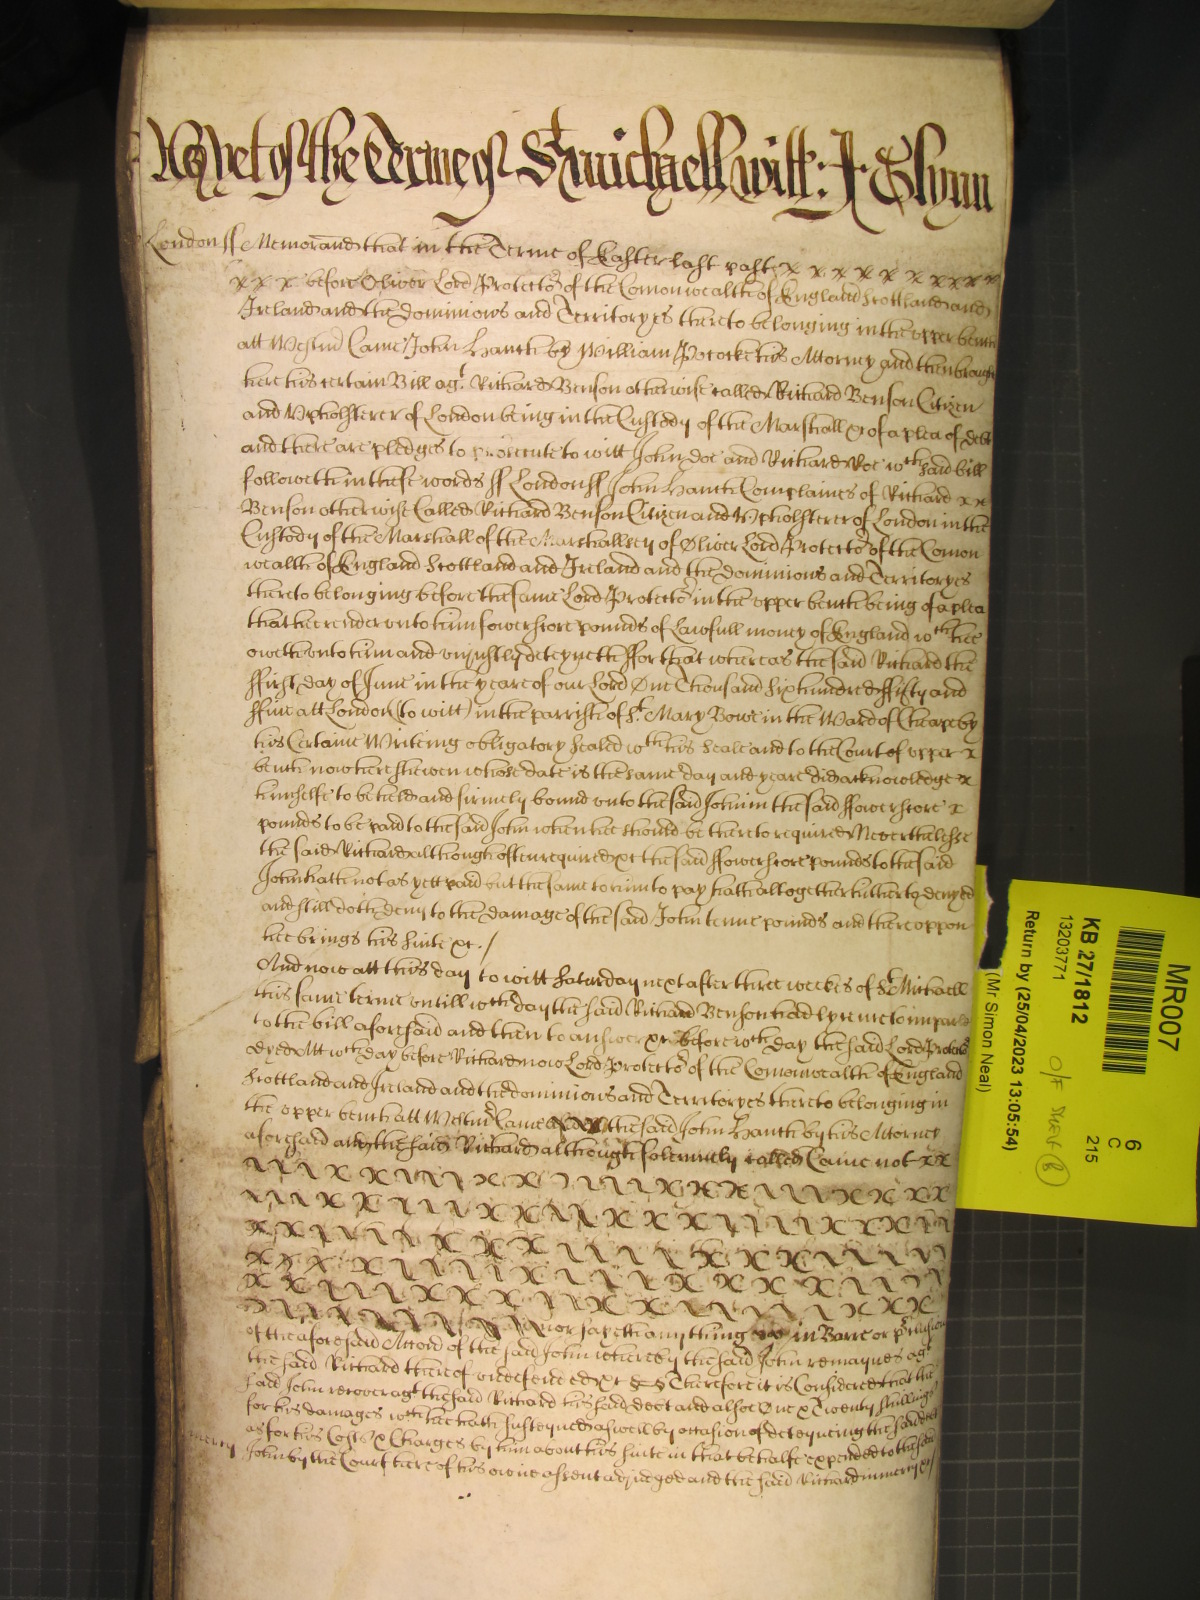 As yet of the Terme of St Michaell Witt: J Glynn
London ss Memorand that in the Terme of Easter last past x x x x x x x x x x
x x x before Oliver Lord Protector of the Comonwealth of England Scottland and
Ireland and the dominions and Territoryes thereto belonging in the upper bench
att Westmr Came John Hanch by William Pococke his Attorney and then brought
here his certain Bill agt Richard Benson otherwise called Richard Benson Citizen
and Upholsterer of London being in the Custody of the Marshall &c of a plea of debt
and there are pledges to prosecute to witt John Doe and Richard Roe wch said bill
followeth in these words ss London ss John Hanch Complaines of Richard x x
Benson otherwise Called Richard Benson Citizen and Upholsterer of London in the
Custody of the Marshall of the Marshallsey of Oliver Lord Protector of the Comon
wealth of England Scottland and Ireland and the dominions and Territoryes
thereto belonging before the same Lord Protector in the upper bench being of a plea
that he render unto him fowerscore pounds of Lawfull money of England wch hee
oweth unto him and unjustly deteyneth ffor that whereas the said Richard the
ffirst day of June in the yeare of our Lord One Thousand Six hundred ffifty and
ffive att London (to witt) in the parrish of St Mary Bowe in the Ward of Cheape by
his Certaine Writeing obligatory Sealed wth his Seale and to the Court of upper x
bench now here shewen whose date is the same day and yeare did acknowledge x
himselfe to be held and firmely bound unto the said John in the said ffowerscore x
pounds to be paid to the said John when hee should be thereto required Neverthelesse
the said Richard although often required &c the said ffowerscore pounds to the said
John hath not as yett paid but the same to him to pay hath altogether hitherto denyed
and still doth deny to the damage of the said John tenne pounds and thereuppon
hee brings his suite &c. /
And now att this day to witt Saturday next after three weekes of St Michaell
this same terme untill wch day the said Richard Benson had lycence to imparle
to the bill aforesaid and then to answer &c before wch day the said Lord Protector
dyed Att wch day before Richard now Lord Protector of the Comonwealth of England
Scottland and Ireland and the dominions and Territoryes thereto belonging in
the upper bench att Westmr Came the said John Hanch by his Attorney
aforesaid and the said Richard although solemnely called Came not x x
nor sayeth any thing in Barre or
of the aforesaid Accord of the said John whereby the said John remaynes agt
the said Richard thereof undefended &c Therefore it is Considered that the
said John recover agt the said Richard his said debt and alsoe One & Twenty shillings
for his damages wch hee hath susteyned aswell by occasion of deteyneing the said debt
as for his Costs & Charges by him about his suite in that behalfe expended to the said
mercy John by the Court here of his owne assent adjudged and the said Richard in mercy &c/
MR007
KB 27/1812
13203771
Return by (25/04/2023 13:05:54)
(Mr Simon Neal)
6
C
215
O/F